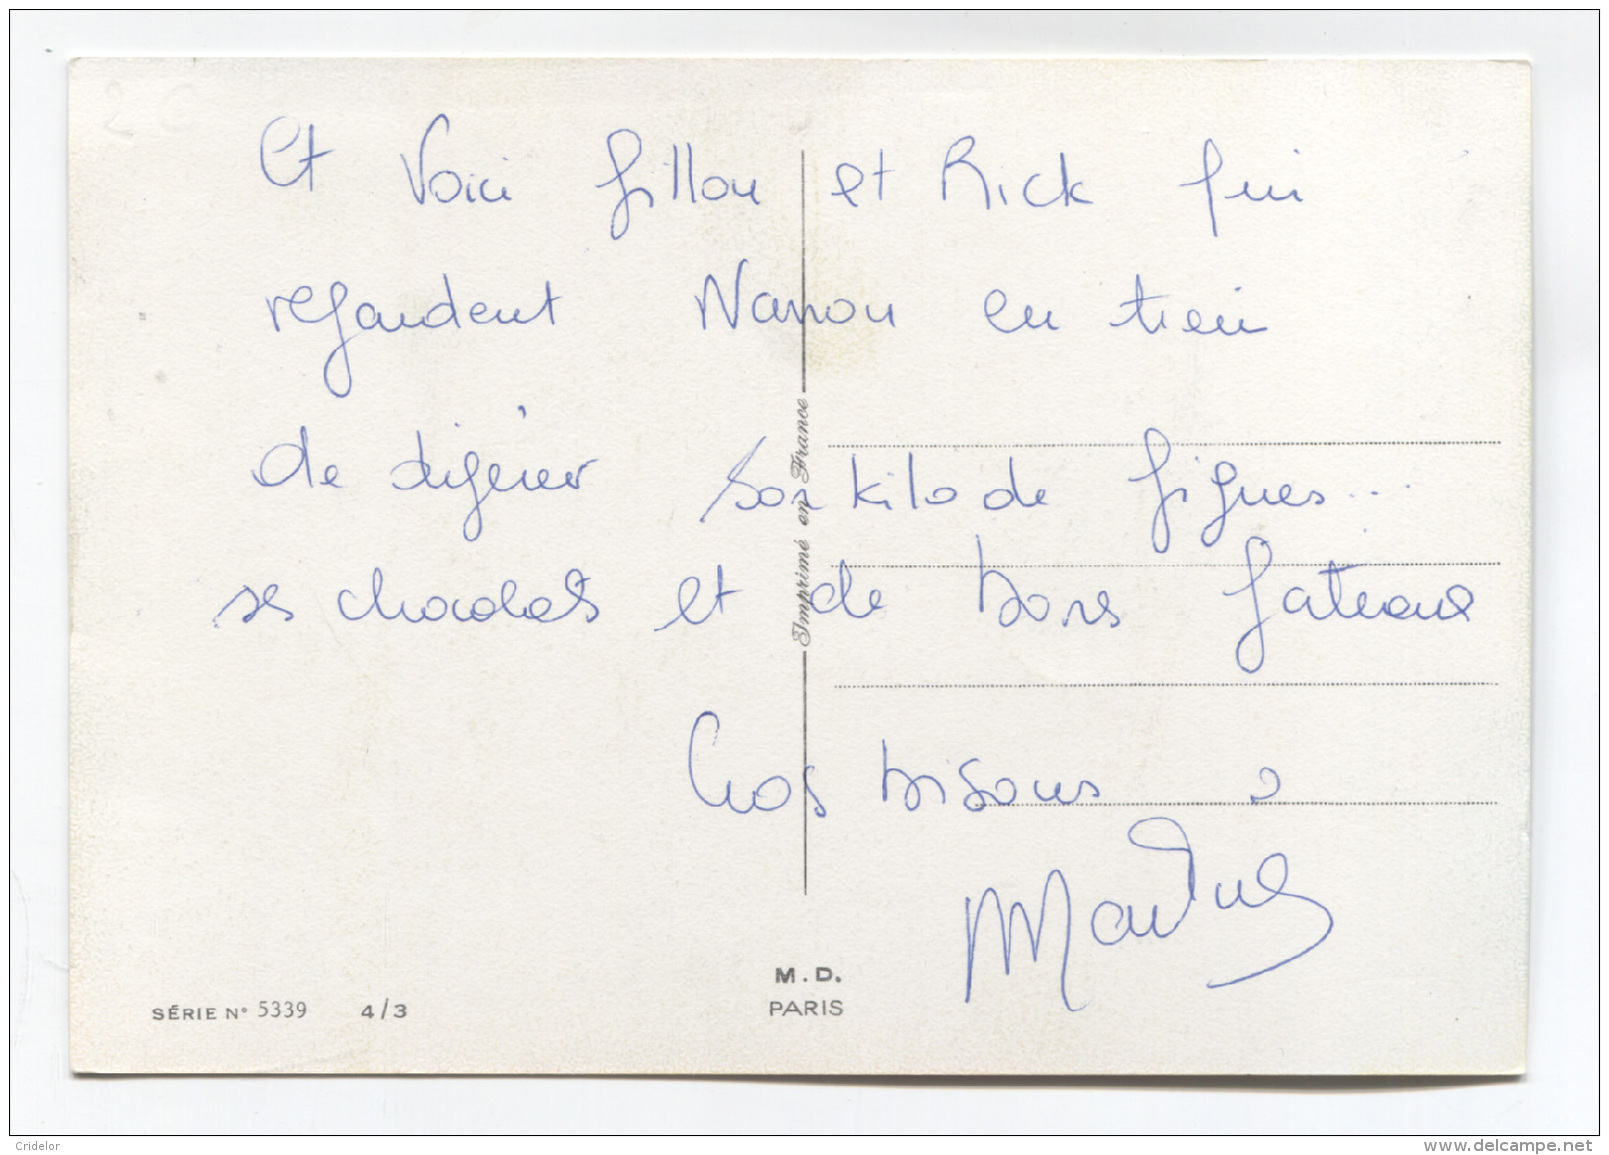 Et Voici Gillou et Rick qui
regardent Nanou en train
de digérer son kilo de figues...
ses chocolats et de bons gateaux
Gros bisous
Martine
Imprimé en France
M.D.
PARIS
SÉRIE N° 5339 4/3
Cridelor
www.delcampe.net